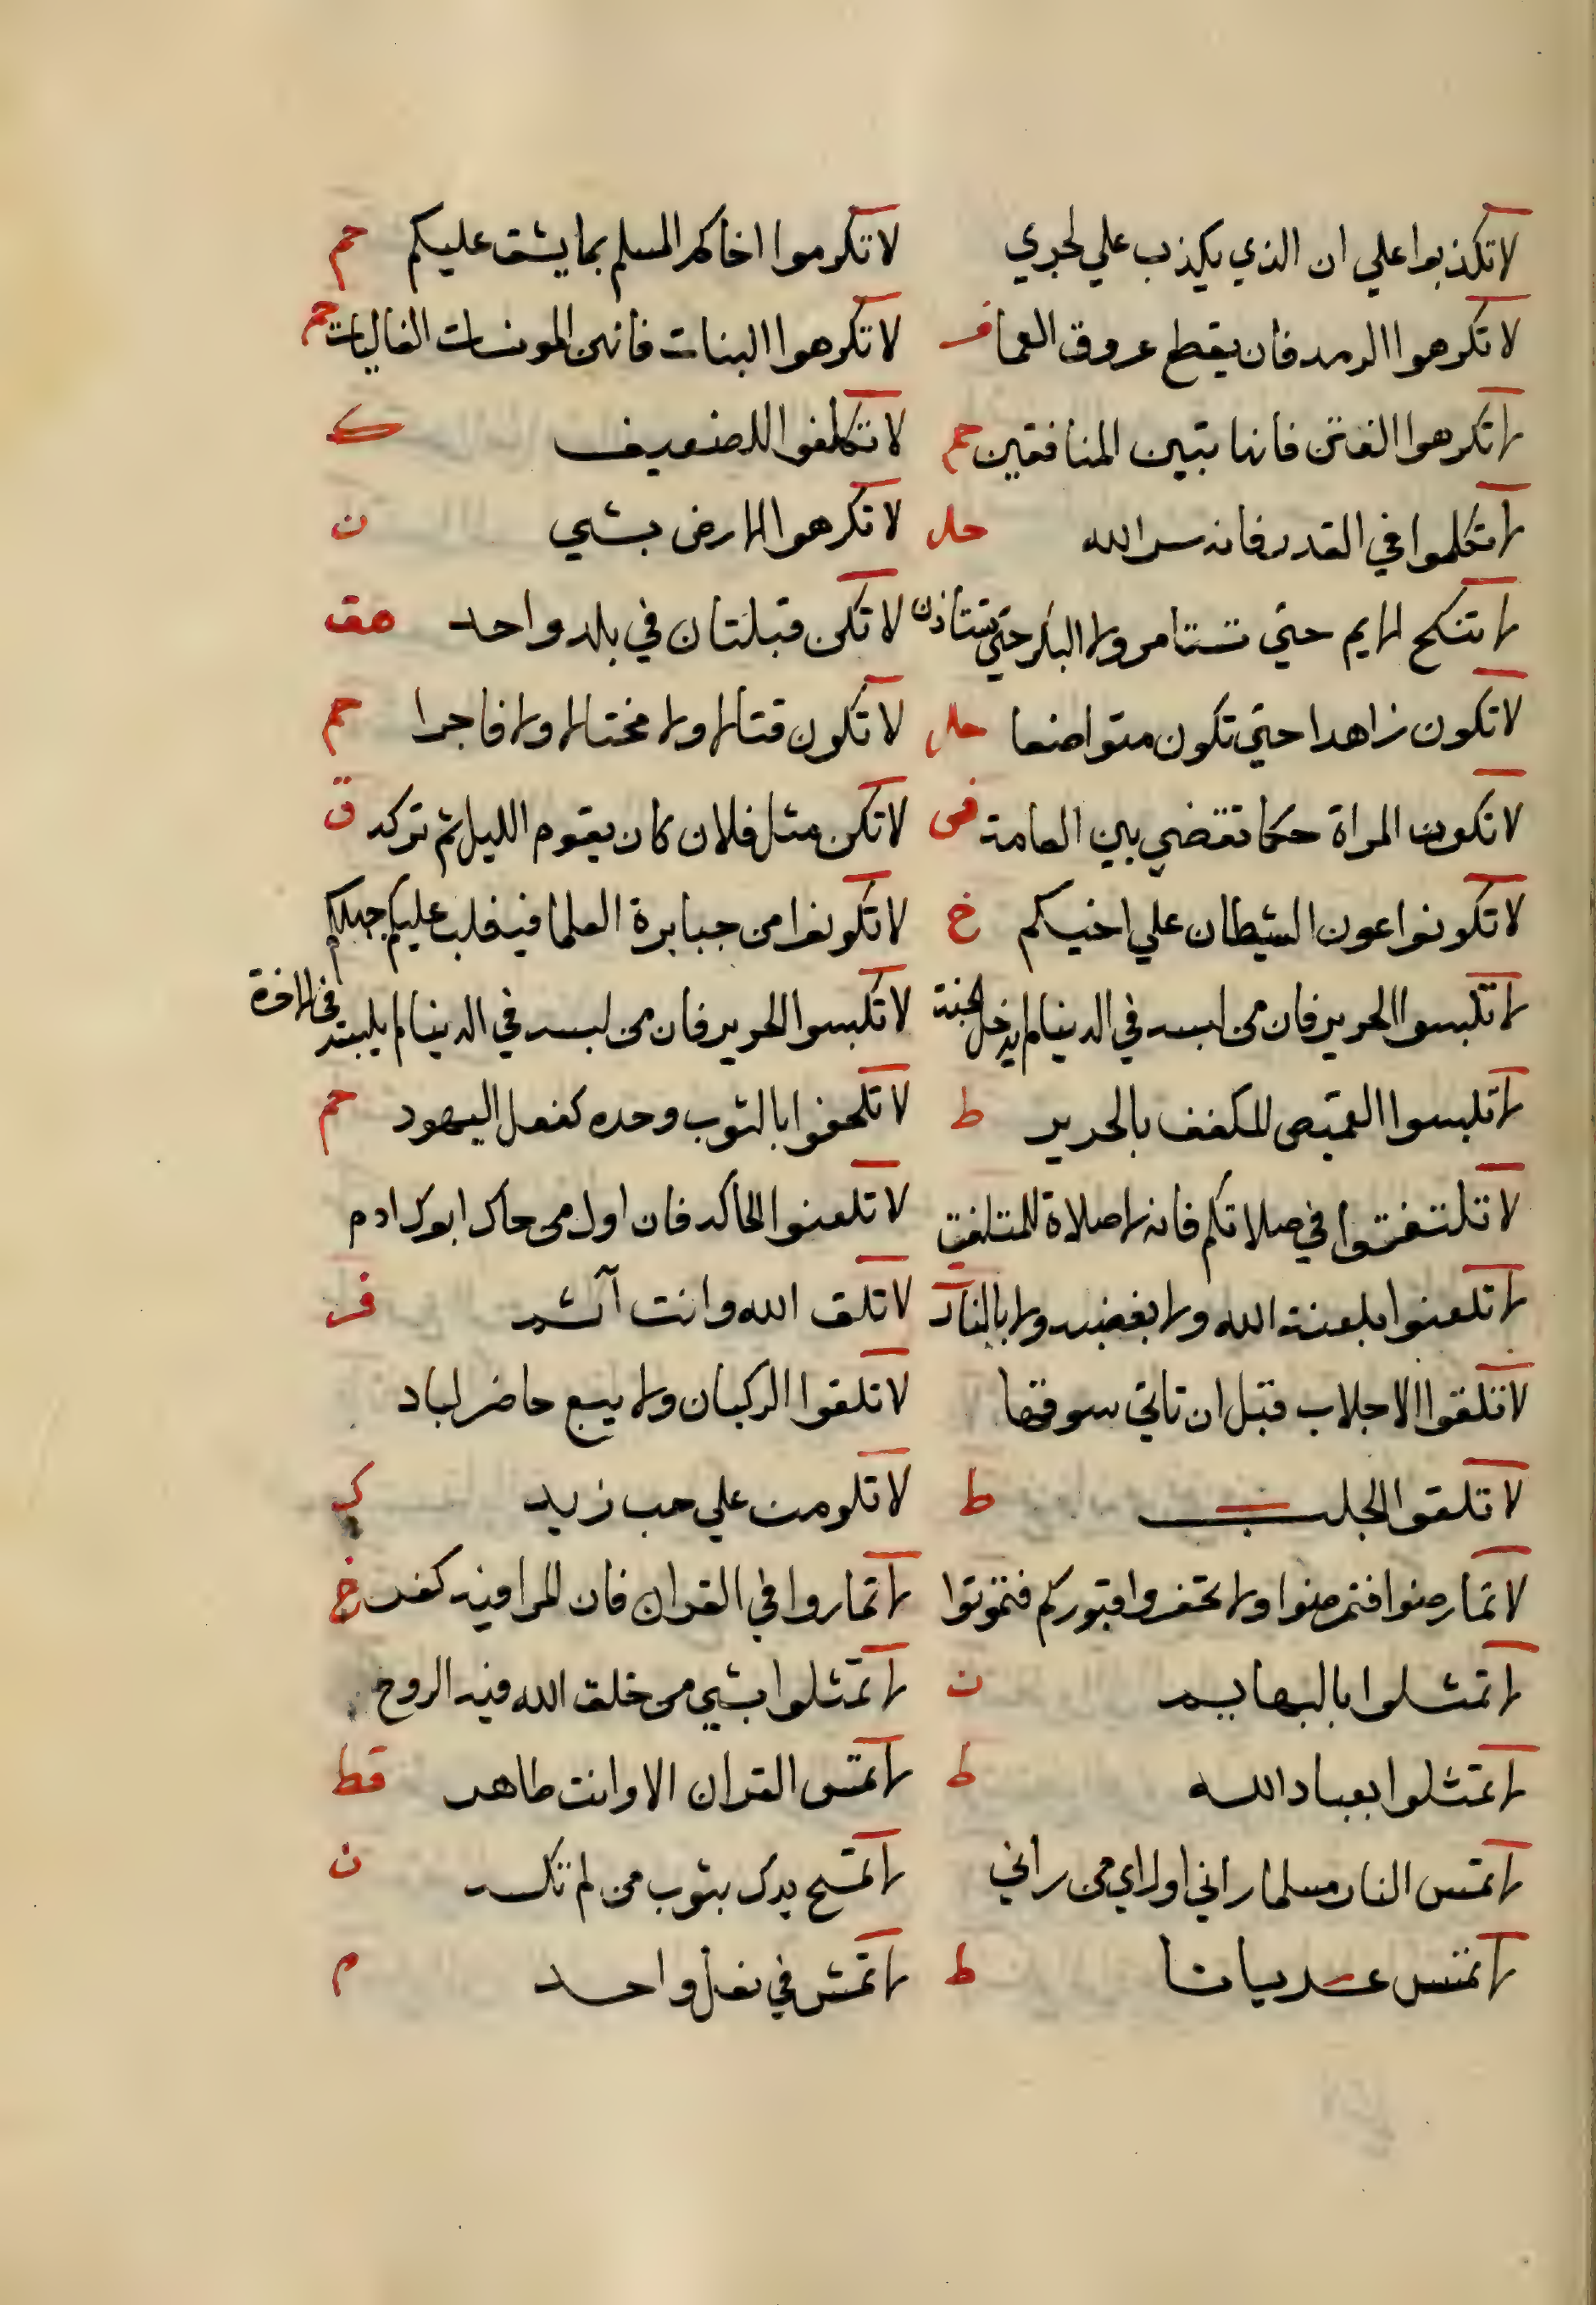 لا تكذبوا علي ان الذي يكذب علي لجري لا تكرموا اخاكم المسلم بما يشق عليكم حم
لا تكرهوا الرمد فان يقطع عروق العما فر لا تكرهوا البنات فانهن المونسات الغاليات حم
لا تكرهوا الفتن فانها تبين المنافقين حم لا تكلفوا للضعيف ك
لا تتكلموا في القدر فانه سر الله حل لا تكرهوا الارض بشي ن
لا تنكح الايم حتي تستامر ولا البكر حتي تستاذن لا تكن قبلتان في بلد واحد هق
لا تكون زاهدا حتي تكون متواضعا حل لا تكون قتالا ولا مختالا ولا فاجرا حم
لا تكون المراة حكما تقضي بين العامة فى لا تكن مثل فلان كان يقوم الليل ثم تركه ق
لا تكونوا عون الشيطان علي اخيكم خ لا تكونوا من جبابرة العلما فيغلب عليكم جهلكم
لا تلبسوا الحرير فان من لبسه في الدنيا لم يدخل الجنة لا تلبسوا الحرير فان من لبسه في الدنيا لم يلبسه في الاخرة
لا تلبسوا القميص المكفف بالحرير ط لا تلحفوا بالثوب وحده كفعل اليهود حم
لا تلتفتوا في صلاتكم فانه لا صلاة للمتلفت لا تلعنوا الحاكه فان اول من حاك ابوك ادم
لا تلعنوا بلعنة الله ولا بغضبه ولا بالنار لا تلق الله وانت آثم فر
لا تلقوا الاجلاب قبل ان تاتي سوقها لا تلقوا الركبان ولا يبيع حاضر لباد
لا تلقوا الجلب ط لا تلومن علي حب زيد ك
لا تمارضوا فتمرضوا ولا تحفروا قبوركم فتموتوا لا تماروا في القران فان المرا فيه كفر خ
لا تمثلوا بالبهايم ن لا تمثلوا بشي من خلق الله فيه الروح
لا تمثلوا بعباد الله ط لا تمس القران الا وانت طاهر قط
لا تمس النار مسلما راني او راي من راني لا تمسح يدك بثوب من لم تكسه ن
لا تمش عريانا ط لا تمش في نعل واحد م